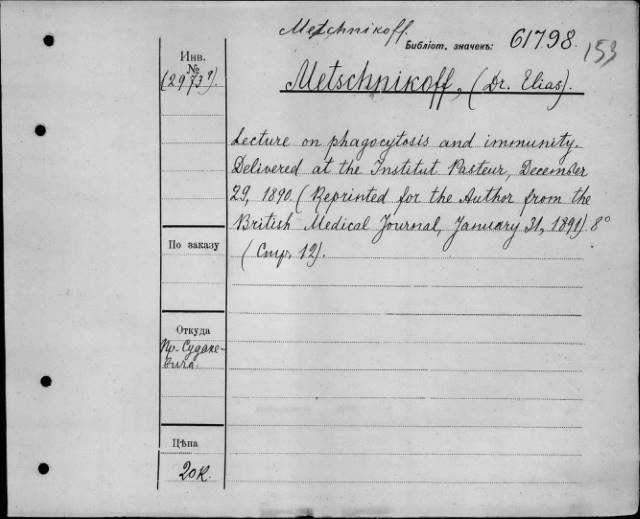 Metschnikoff.
Библіот. значекъ: 61798.
153
Инв.
№
(2973⁷).
Metschnikoff, (Dr. Elias).
Lecture on phagocytosis and immunity.
Delivered at the Institut Pasteur, December
29, 1890. (Reprinted for the Author from the
British Medical Journal, January 31, 1891). 8°
(Стр. 12).
По заказу
Откуда
Пр. Судаке-
вича.
Цѣна
20 к.